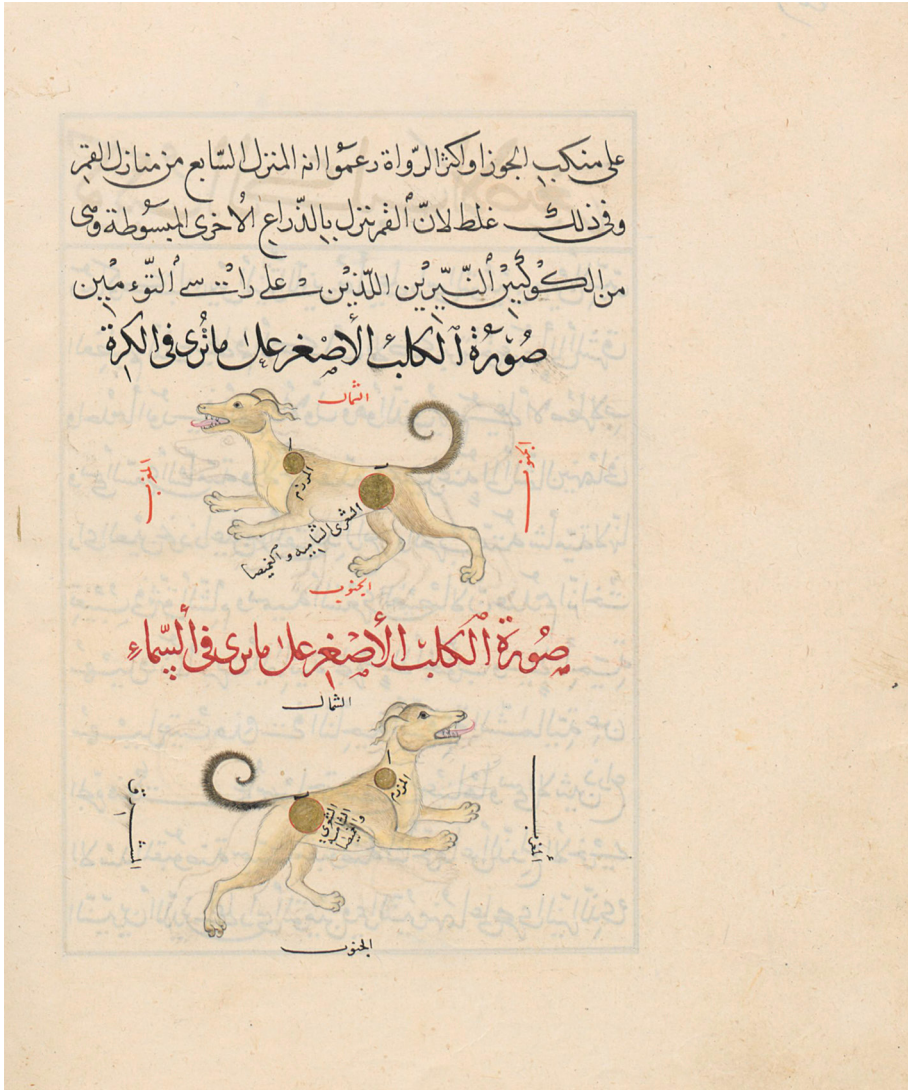 على منكب الجوزا واكثر الرّواة زعموا انه المنزل السّابع من منازل القمر
وفى ذلك غلط لانّ ٱلقمر تنزل بالذّراع الأخرى المبسوطة وهى
من الكوكبين ٱلنّيّرين اللّذين على راسى ٱلتّوءمين
صُوْرَة ٱلكلب الأصْغر على ماتُرى فى الكرة
الشمال
الجنوب
المغرب
المرزم
الشعرى الشاميه و الغميصا
الجنوب
صُورة ٱلكلب الأصْغر على مايرى فى ٱلسّماء
الشمال
المرزم
الشعرى
الشاميه
والغميصا
المشرق
المغرب
الجنوب